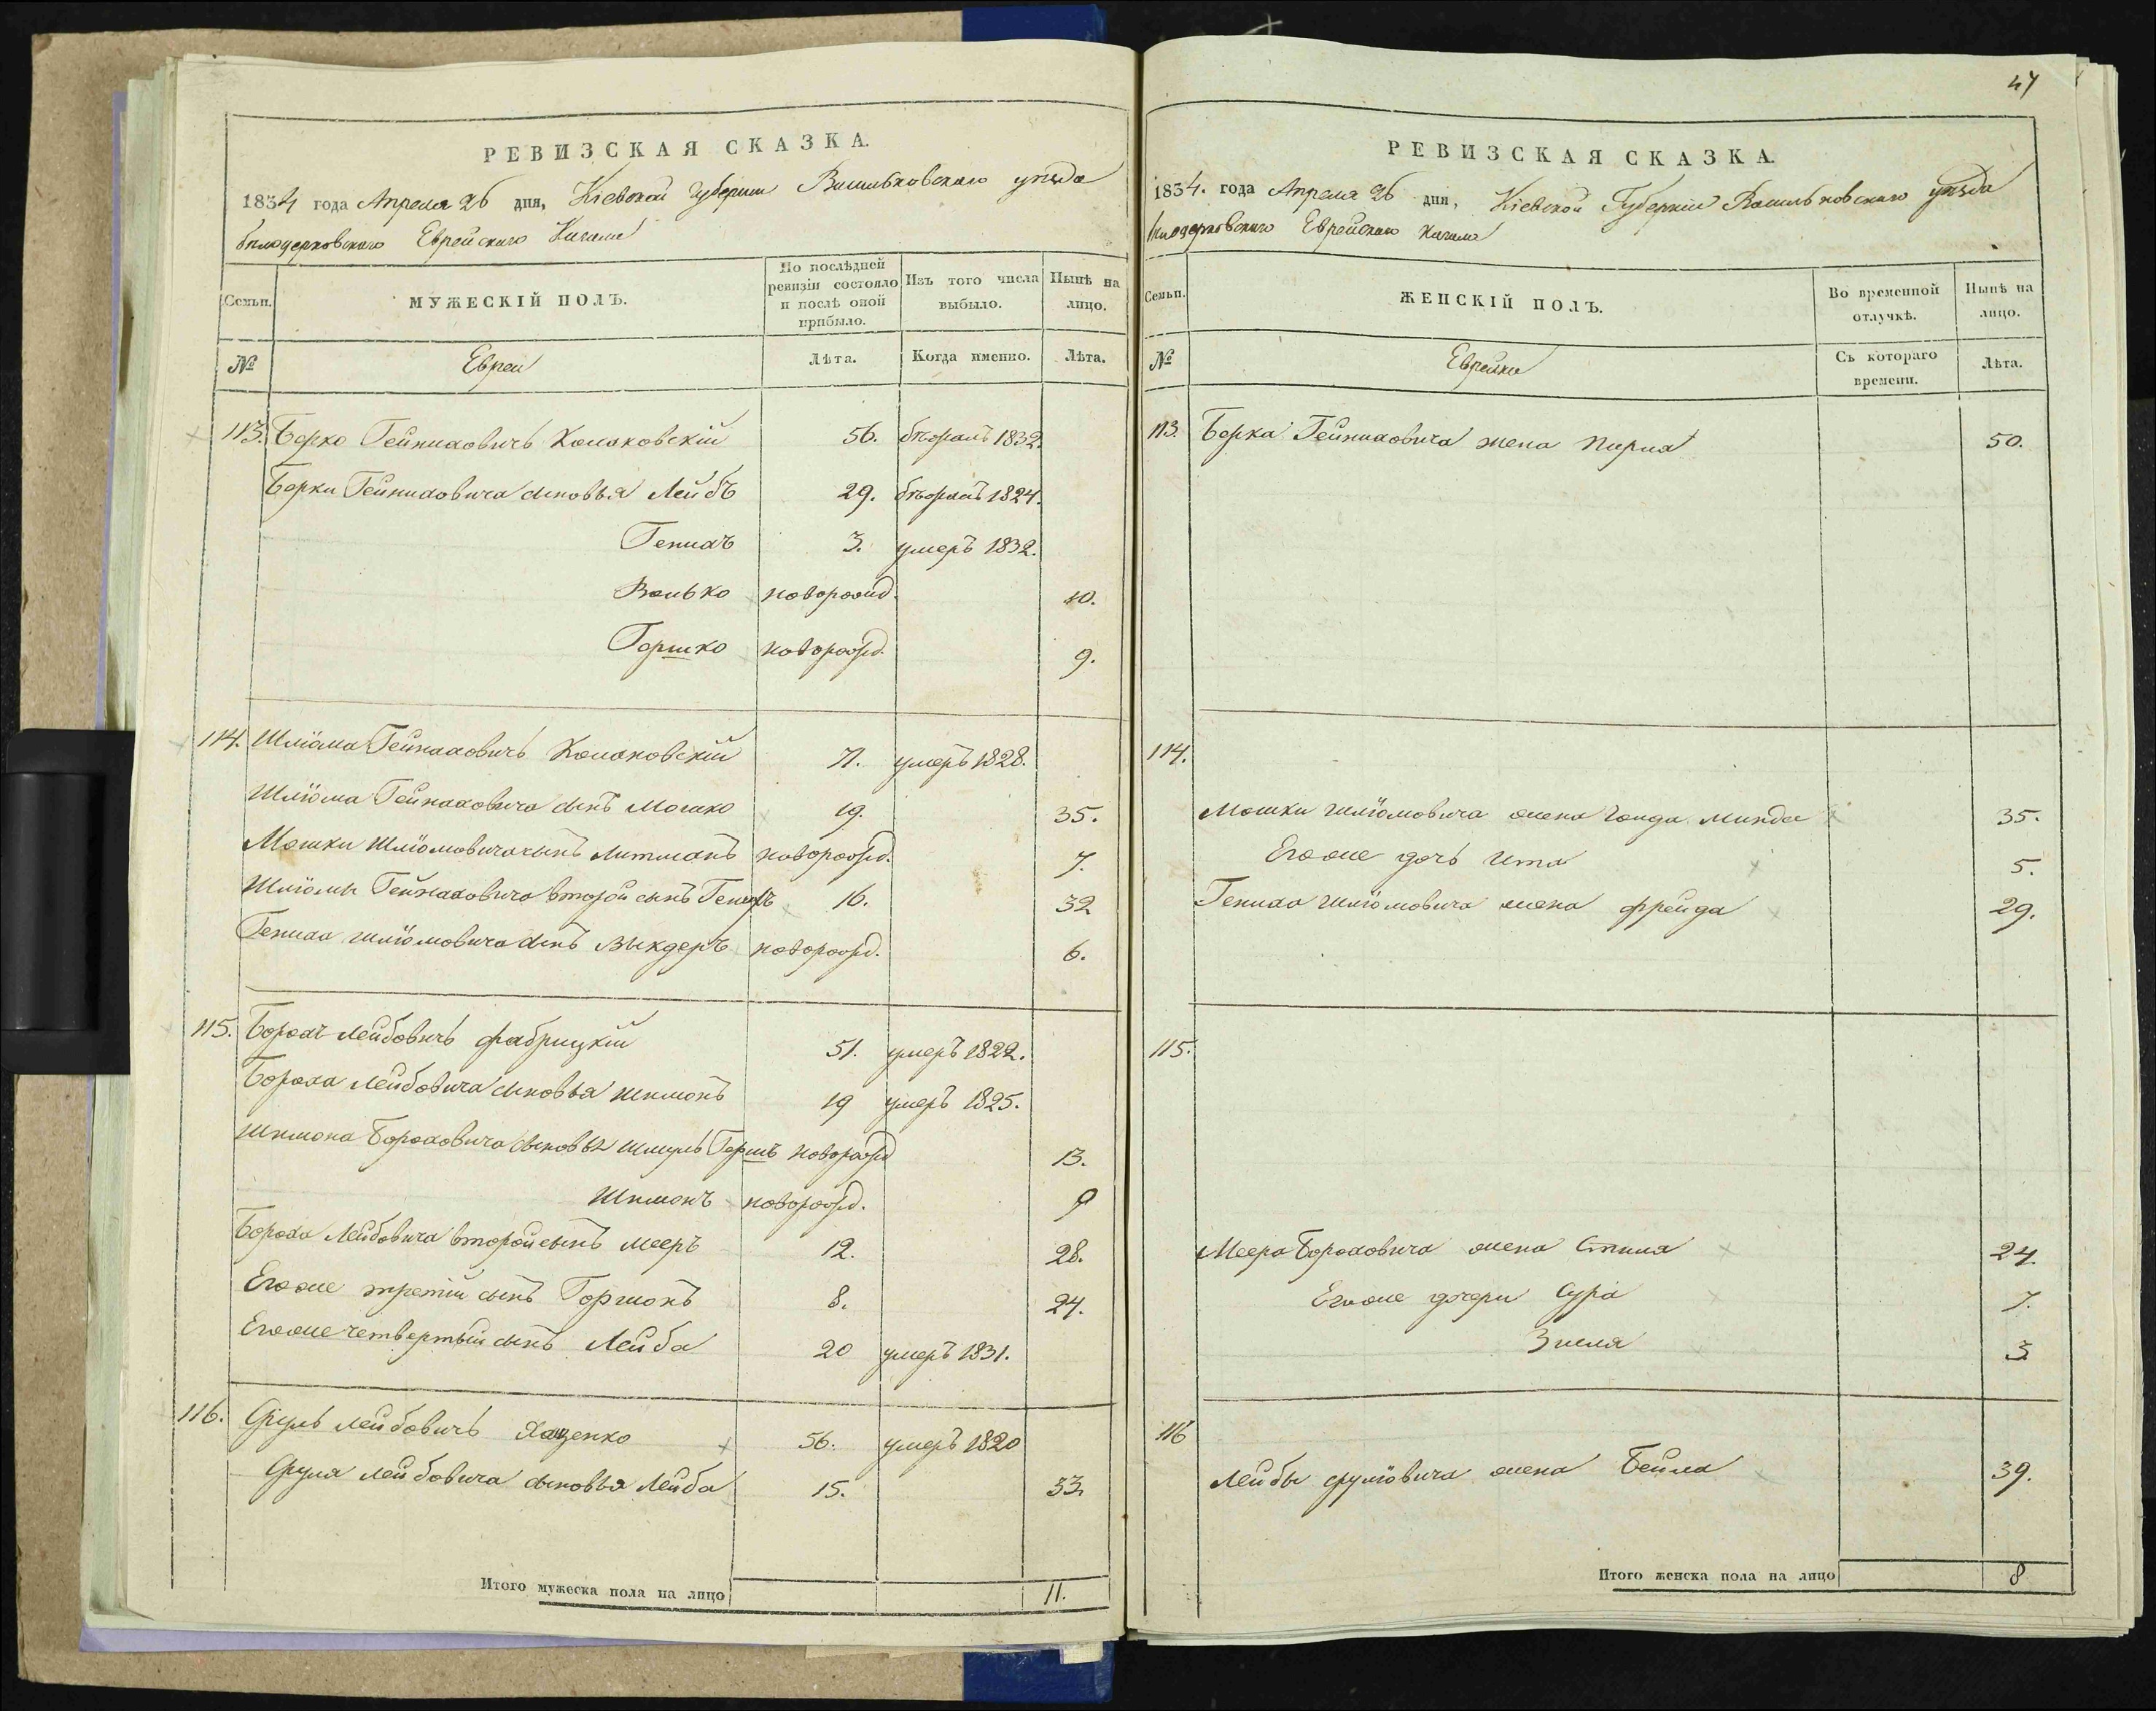 РЕВИЗСКАЯ СКАЗКА.
1834 года Апреля 26 дня, Кіевской Губерніи Васильковскаго уѣзда
білоцерковскаго Еврейскаго Кагала
Семьи.
МУЖЕСКІЙ ПОЛЪ.
По послѣдней ревизіи состояло и послѣ оной прибыло.
Изъ того числа выбыло.
Нынѣ на лицо.
№
Евреи
Лѣта.
Когда именно.
Лѣта.
113. Берко Гейниховичъ 56. бѣжалъ 1832.
Берки Гейниховича сыновья Лейбъ 29. бѣжалъ 1824.
Генихъ 3. умеръ 1832.
Волько новорожд. 10.
Гершко новорожд. 9.
114. Шліома Гейнаховичъ 71. умеръ 1828.
Шліома Гейнаховича сынъ Мошко 19. 35.
Мошки Шліомовича сынъ Литманъ новорожд. 7.
Шліомы Гейнаховича второй сынъ Генихъ 16. 32
Гениха шліомовича сынъ новорожд. 6.
115. Борохъ Лейбовичъ фабрицкій 51. умеръ 1822.
Бороха Лейбовича сыновья Шимонъ 19 умеръ 1825.
Шимона Бороховича сыновья Шмуль Гершъ новорожд 13.
Шимонъ новорожд. 9
Бороха Лейбовича второй сынъ Мееръ 12. 28.
Егоже третій сынъ Горшонъ 8. 24.
Егоже четвертый сынъ Лейба 20 умеръ 1831.
116. Сруль Лейбовичъ 56. умеръ 1820
Сруля Лейбовича сыновья Лейба 15. 33.
Итого мужеска пола на лицо 11.
47
РЕВИЗСКАЯ СКАЗКА.
1834. года Апреля 26 дня, Кіевской Губерніи Васильковскаго уѣзда
білоцерковскаго Еврейскаго Кагала
Семьи.
ЖЕНСКІЙ ПОЛЪ.
Во временной отлучкѣ.
Нынѣ на лицо.
№
Еврейки
Съ котораго времени.
Лѣта.
113. Берка Гейниховича жена 50.
114.
Мошки шліомовича жена Минда 35.
Егоже дочь Ита 5.
Гениха шліомовича жена фрейда 29.
115.
Меера Бороховича жена 24.
Егоже дочери Сура 7.
3.
116
Лейбы срулiовича жена Бейла 39.
Итого женска пола на лицо 8